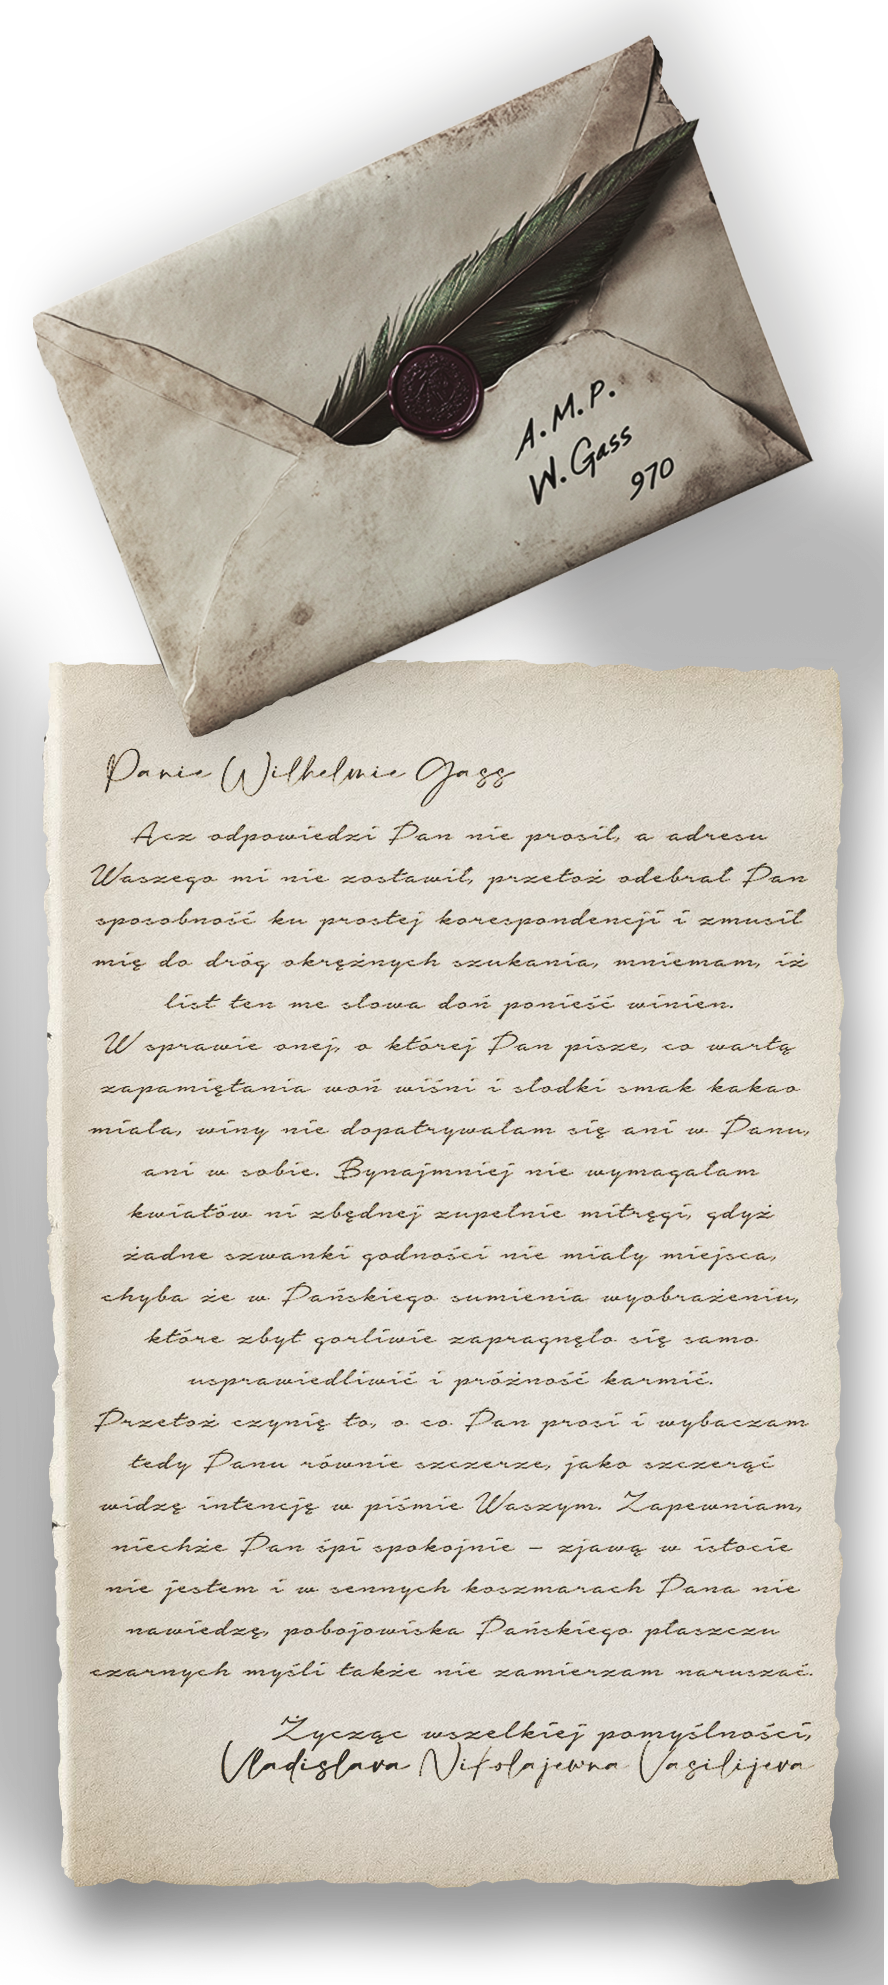 A.M.P.
W. Gass
970
Panie Wilhelmie Gass
Acz odpowiedzi Pan nie prosił, a adresu
Waszego mi nie zostawił, przetoż odebrał Pan
sposobność ku prostej korespondencji i zmusił
mię do dróg okrężnych szukania, mniemam, iż
list ten me słowa doń ponieść winien.
W sprawie onej, o której Pan pisze, co wartą
zapamiętania woń wiśni i słodki smak kakao
miała, winy nie dopatrywałam się ani w Panu,
ani w sobie. Bynajmniej nie wymagałam
kwiatów ni zbędnej zupełnie mitręgi, gdyż
żadne szwanki godności nie miały miejsca,
chyba że w Pańskiego sumienia wyobrażeniu,
które zbyt gorliwie zapragnęło się samo
usprawiedliwić i próżność karmić.
Przetoż czynię to, o co Pan prosi i wybaczam
tedy Panu równie szczerze, jako szczerąć
widzę intencję w piśmie Waszym. Zapewniam,
niechże Pan śpi spokojnie – zjawą w istocie
nie jestem i w sennych koszmarach Pana nie
nawiedzę, pobojowiska Pańskiego płaszczu
czarnych myśli także nie zamierzam naruszać.
Życząc wszelkiej pomyślności,
Vladislava Nikolajewna Vasilijeva